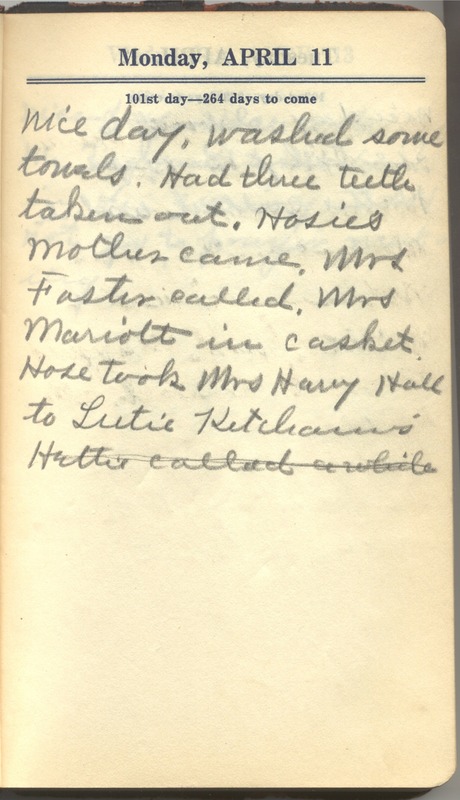 Monday, APRIL 11
101st day—264 days to come
Nice day. washed some
towels. Had three teeth
taken out. Hosies
Mother came. Mrs
Foster called. Mrs
Mariott in casket
Hose took Mrs Harry Hall
to Lutie Ketchams
Hettie called awhile